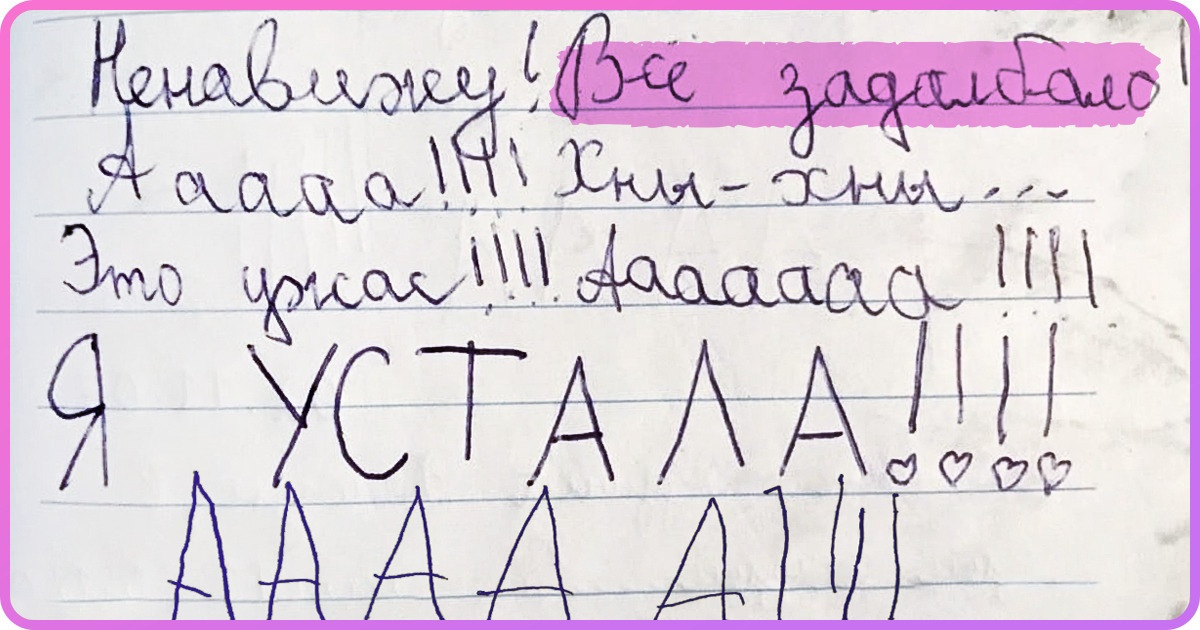 Ненавижу! Всё задалбало!
Ааааа!!!! Хны-хны...
Это ужас!!!! Ааааааа!!!!
Я УСТАЛА!!!!
ААААА!!!!